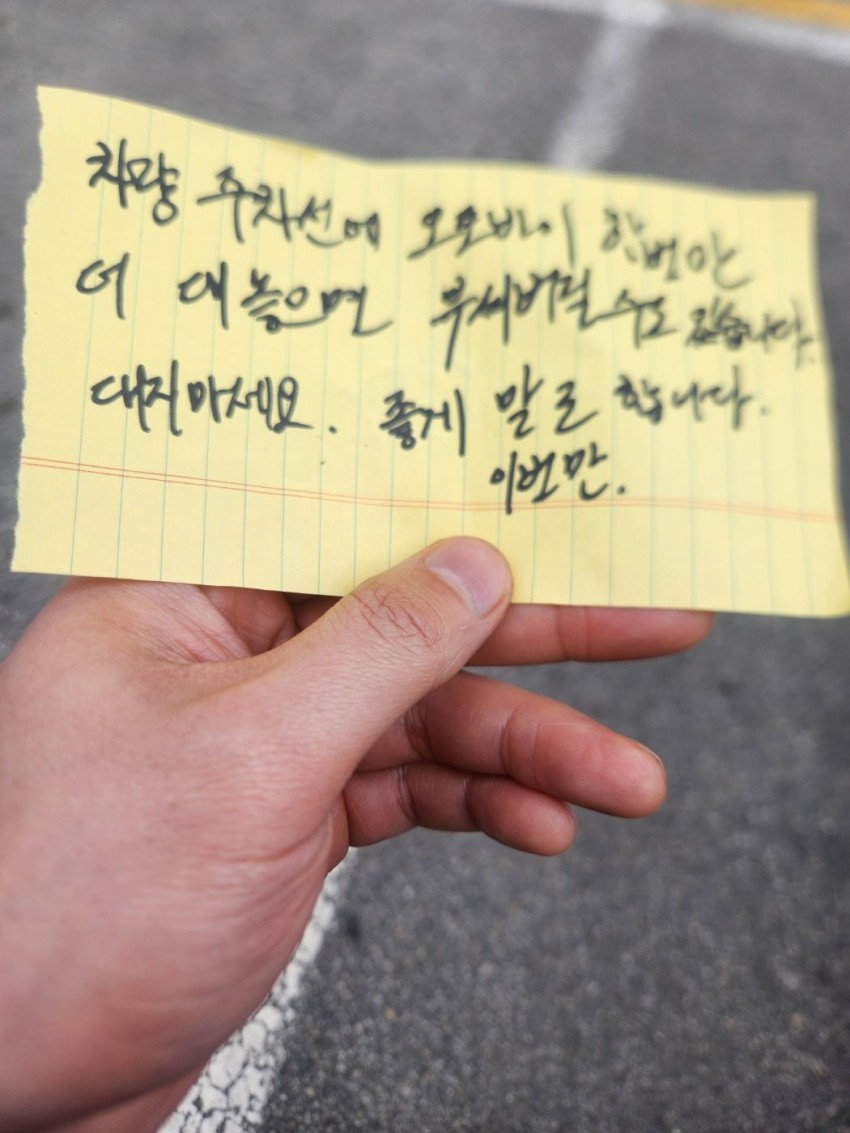 차량 주차선에 오오바이 한번만
더 대놓으면 부셔버릴 수도 있습니다.
대지마세요. 좋게 말로 합니다.
이번만.